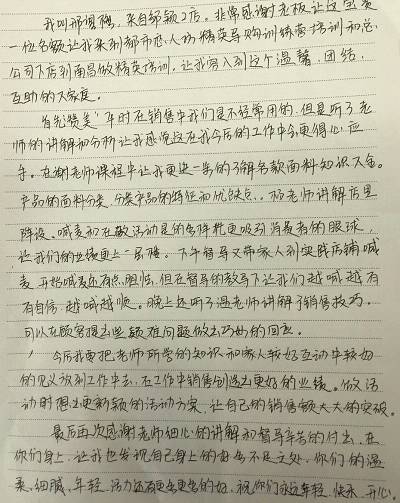 我叫邢雪梅,来自绍颖2店。非常感谢老板让这宝贵
一位名额让我来到都市恋人场精英导购训练营培训和总
公司下店到南昌做精英培训,让我写入到这个温馨、团结、
互助的大家庭。
首先赞美 平时在销售中我们是不经常用的,但是听了老
师的讲解和分析让我感觉这在我今后的工作中会更得心应
手。在谢老师课程中让我更进一步的了解各款面料知识大全。
产品的面料分类、分类产品的特征和优缺点。 老师讲解店里
陈设、喊麦和在做活动是的音样能更吸引消费者的眼球,
让我们的业绩更上一层楼。下午督导又带家人到实践店铺喊
麦 开始喊麦还有点胆怯,但在督导的教导下让我们越喊越有
有自信,越喊越顺。晚上还听了温老师讲解了销售技巧,
可以在顾客提出些疑难问题做出巧妙的回应。
今后我要把老师所学的知识和家人较好互动中较好
的见义放到工作中去,在工作中销售创造出更好的业绩。做活
动时想出更新颖的活动方案,让自己的销售额大大的突破。
最后再次感谢老师细心的讲解和督导辛苦的付出,在
你们身上,让我也发现自己身上的好与不足之处,你们的温
柔、细腻、年轻、活力还有更多更多的好,祝你们永远年轻、快乐、开心。